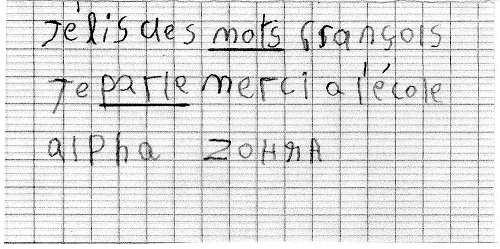 Jélis des mots françois
Je parle merci a l'école
alpha ZOHRA